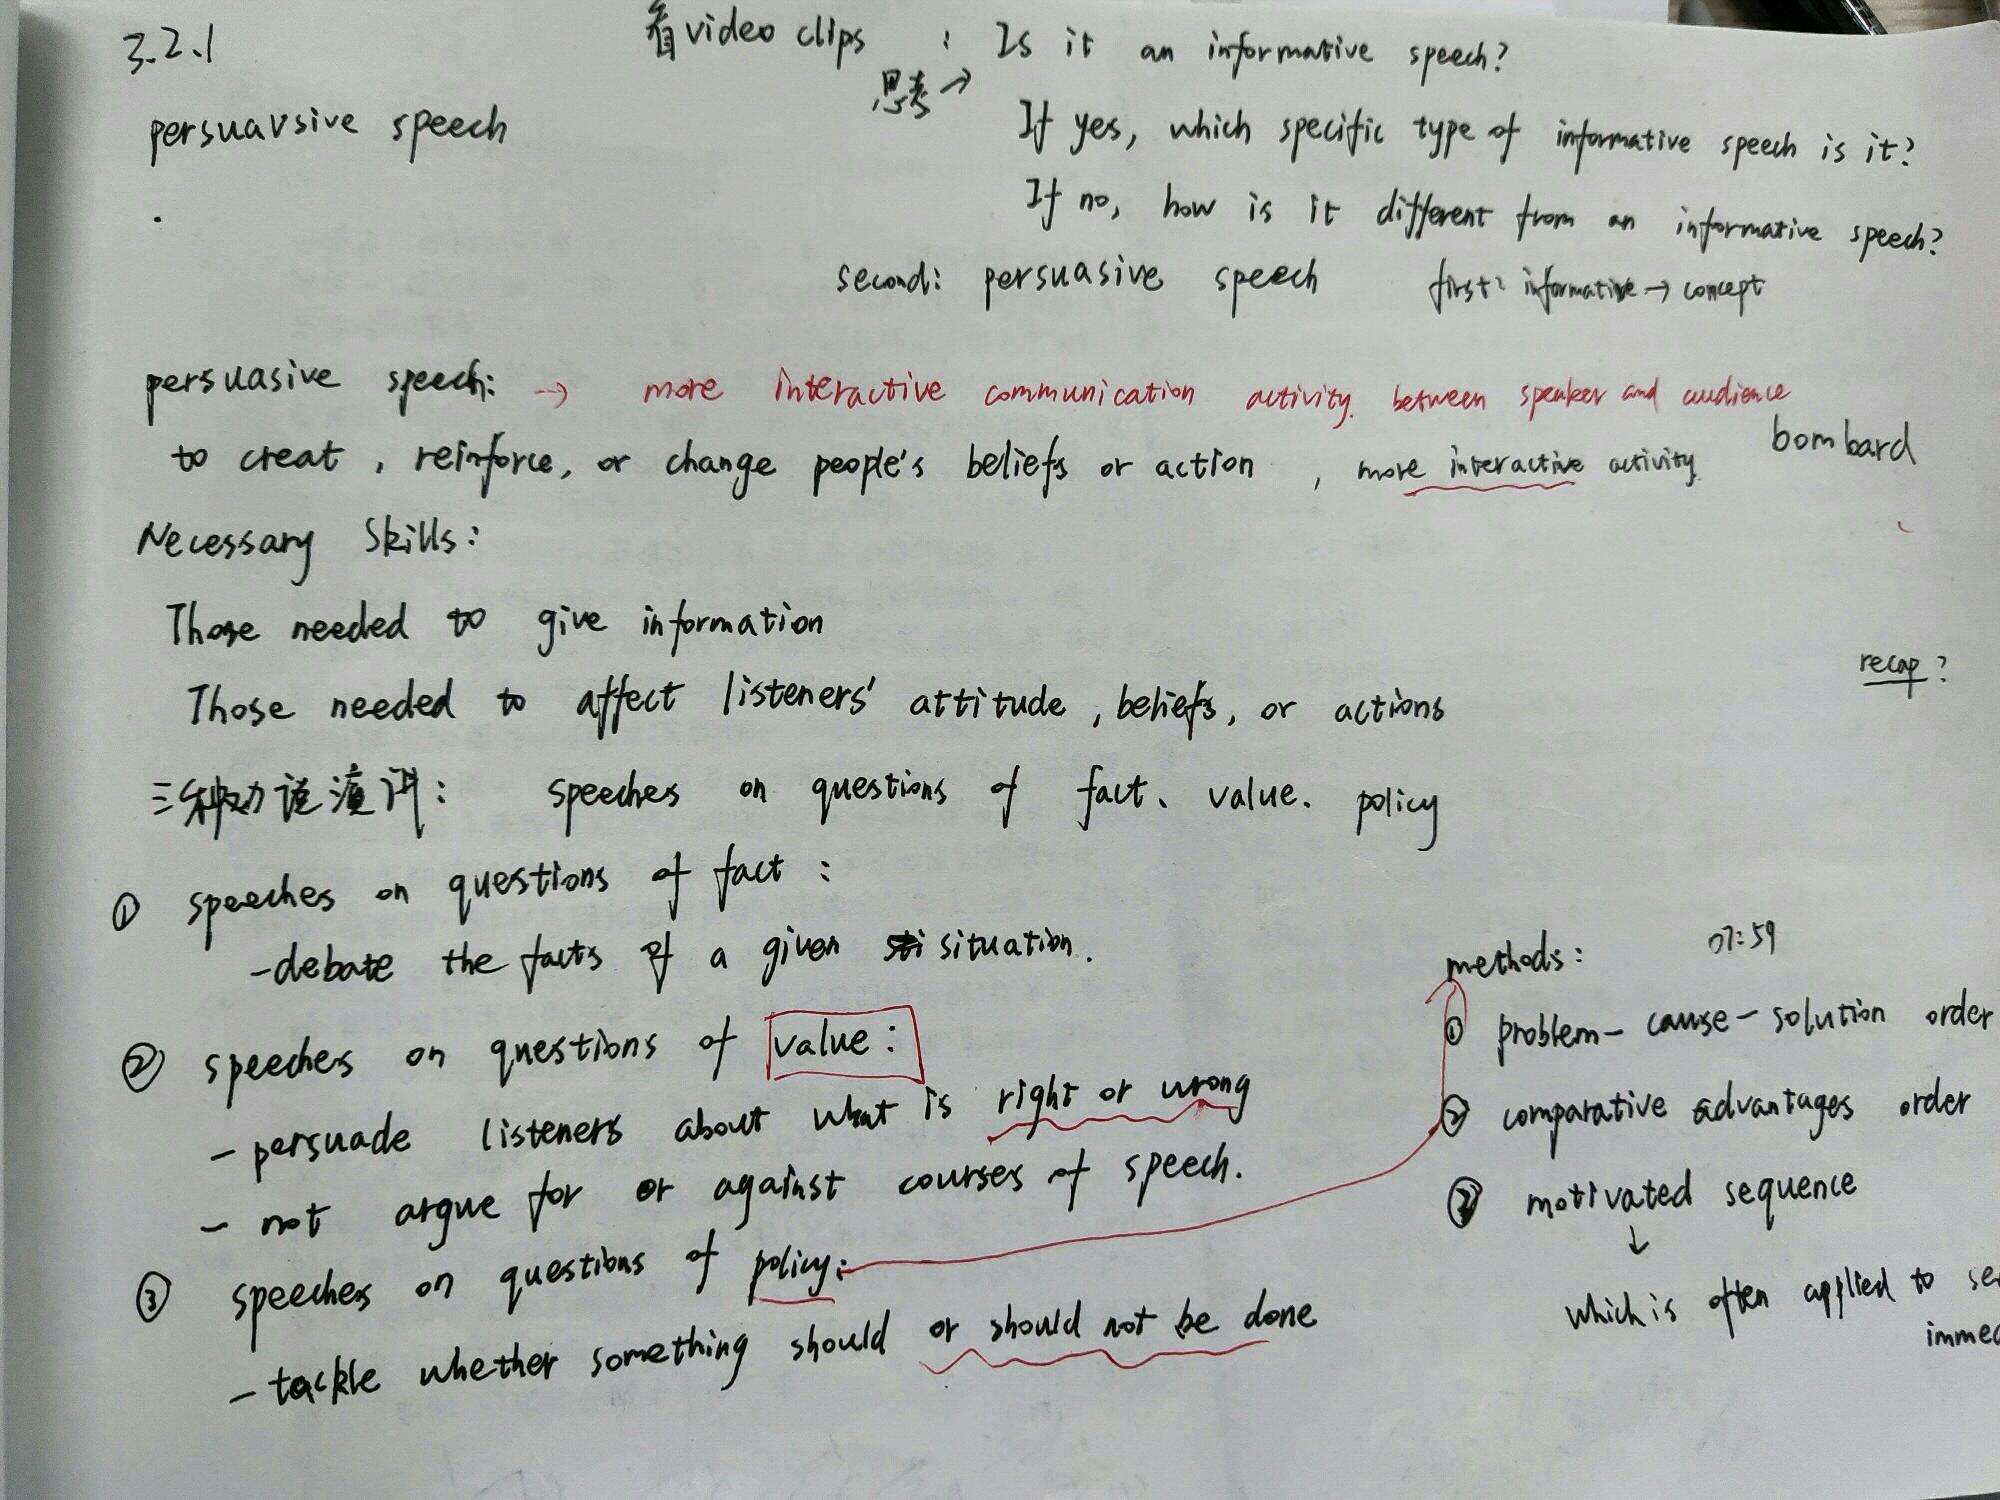 3.2.1
看video clips : Is it an informative speech?
思考→
persuavsive speech
If yes, which specific type of informative speech is it?
If no, how is it different from an informative speech?
second: persuasive speech first: informative → concept
persuasive speech: → more interactive communication activity. between speaker and audience
to creat, reinforce, or change people's beliefs or action , more interactive activity.
bombard
Necessary Skills:
Those needed to give information
recap?
Those needed to affect listeners' attitude, beliefs, or actions
三种劝说演讲: speeches on questions of fact、value. policy
① speeches on questions of fact:
-debate the facts of a given situation.
② speeches on questions of value:
- persuade listeners about what is right or wrong
- not argue for or against courses of speech.
③ speeches on questions of policy:
- tackle whether something should or should not be done
methods: 07:59
① problem-cause-solution order
② comparative advantages order
③ motivated sequence
↓
which is often applied to